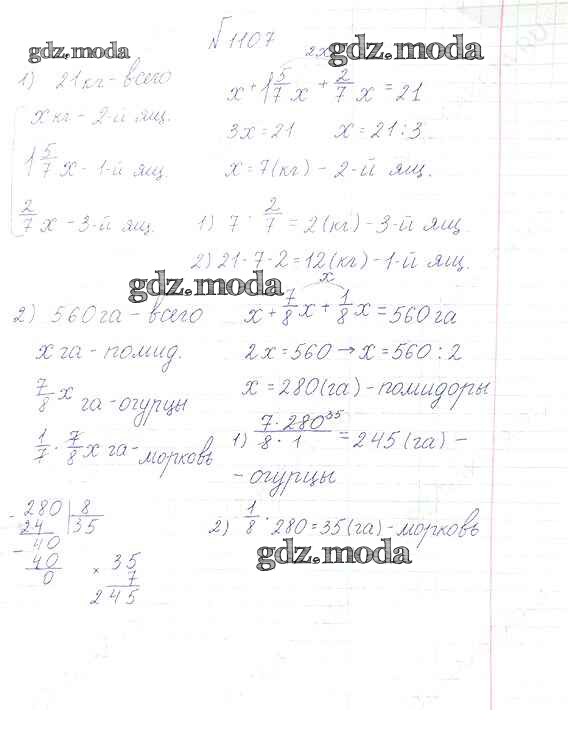 №1107
gdz.moda
gdz.moda
2x
1) 21кг-всего
xкг-2-й ящ.
1 5/7 x-1-й ящ.
2/7 x-3-й ящ.
x+1 5/7 x+2/7 x=21
3x=21 x=21:3
x=7(кг)-2-й ящ.
1) 7·2/7=2(кг)-3-й ящ.
2) 21-7-2=12(кг)-1-й ящ.
gdz.moda
x
2) 560га-всего
xга-помид.
7/8 x га-огурцы
1/7·7/8 x га-морковь
x+7/8 x+1/8 x=560га
2x=560→x=560:2
x=280(га)-помидоры
1) 7·280³⁵/8·1=245(га)-
-огурцы
2) 1/8·280=35(га)-морковь
gdz.moda
-280|8
24 35
-40
40
0
×35
7
245